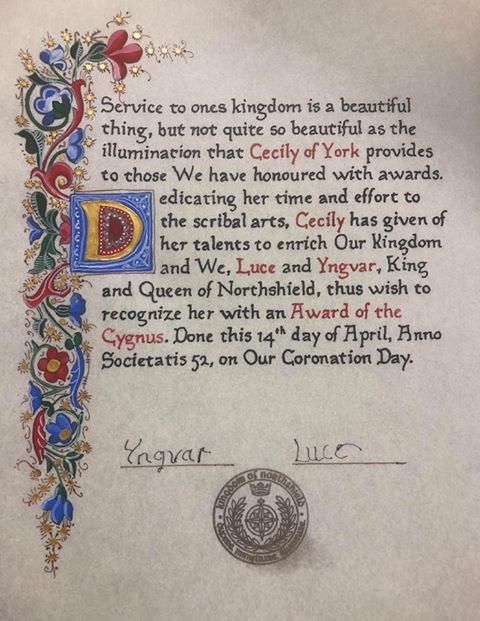 Service to ones kingdom is a beautiful
thing, but not quite so beautiful as the
illumination that Cecily of York provides
to those We have honoured with awards.
Dedicating her time and effort to
the scribal arts, Cecily has given of
her talents to enrich Our Kingdom
and We, Luce and Yngvar, King
and Queen of Northshield, thus wish to
recognize her with an Award of the
Cygnus. Done this 14th day of April, Anno
Societatis 52, on Our Coronation Day.
Yngvar Luce
kingdom of northshield